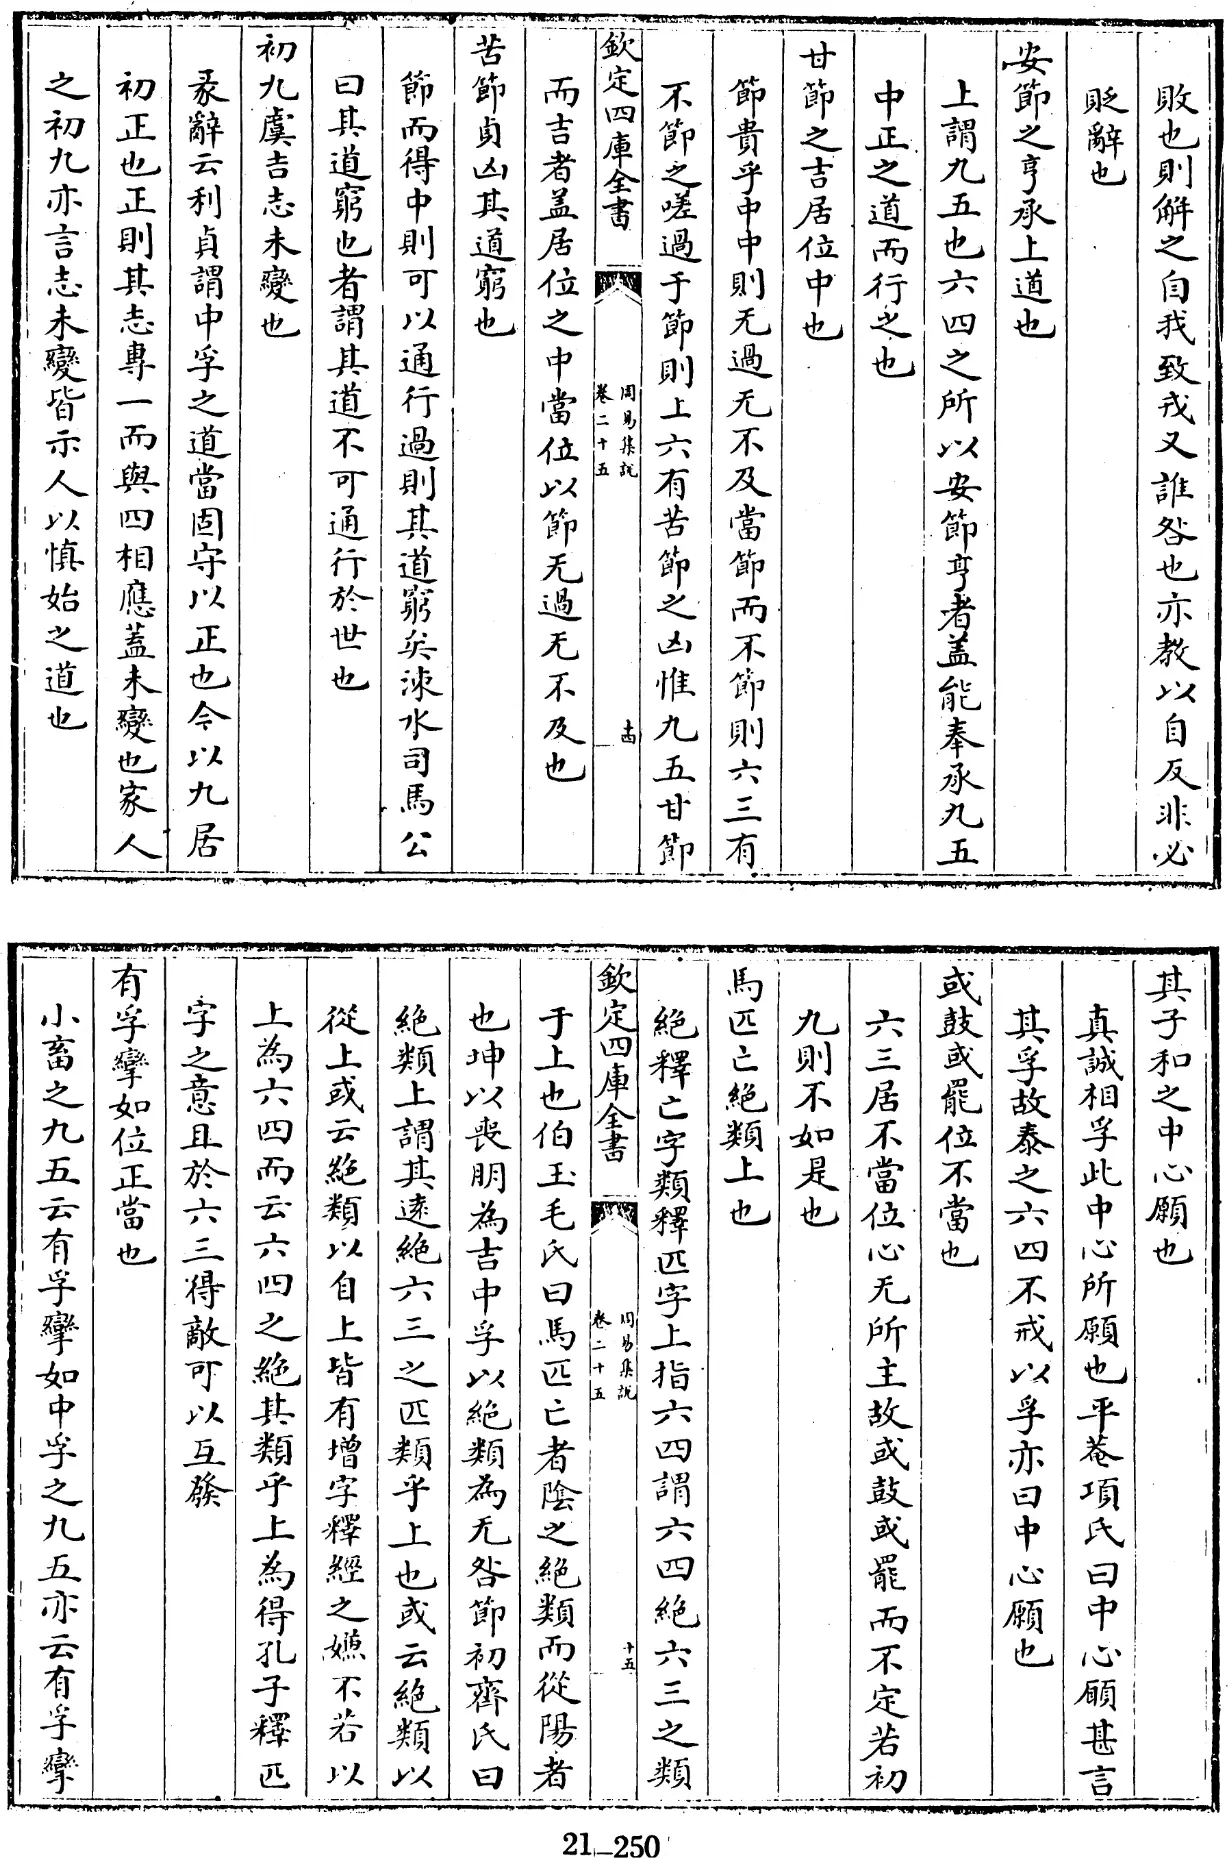 敗也則解之自我致戎又誰咎也亦教以自反非必
貶辭也
安節之亨承上道也
上謂九五也六四之所以安節亨者盖能奉承九五
中正之道而行之也
甘節之吉居位中也
節貴乎中中則无過无不及當節而不節則六三有
不節之嗟過于節則上六有苦節之凶惟九五甘節
欽定四庫全書
周易集說
卷二十五
十四
而吉者盖居位之中當位以節无過无不及也
苦節貞凶其道窮也
節而得中則可以通行過則其道窮矣涑水司馬公
曰其道窮也者謂其道不可通行於世也
初九虞吉志未變也
彖辭云利貞謂中孚之道當固守以正也今以九居
初正也正則其志專一而與四相應蓋未變也家人
之初九亦言志未變皆示人以慎始之道也
其子和之中心願也
真誠相孚此中心所願也平菴項氏曰中心願甚言
其孚故泰之六四不戒以孚亦曰中心願也
或鼓或罷位不當也
六三居不當位心无所主故或鼓或罷而不定若初
九則不如是也
馬匹亡絕類上也
絕釋亡字類釋匹字上指六四謂六四絕六三之類
欽定四庫全書
周易集說
卷二十五
十五
于上也伯玉毛氏曰馬匹亡者陰之絕類而從陽者
也坤以喪朋為吉中孚以絕類為无咎節初齊氏曰
絕類上謂其遠絕六三之匹類乎上也或云絕類以
從上或云絕類以自上皆有增字釋經之嫌不若以
上為六四而云六四之絕其類乎上為得孔子釋匹
字之意且於六三得敵可以互發
有孚攣如位正當也
小畜之九五云有孚攣如中孚之九五亦云有孚攣
21-250